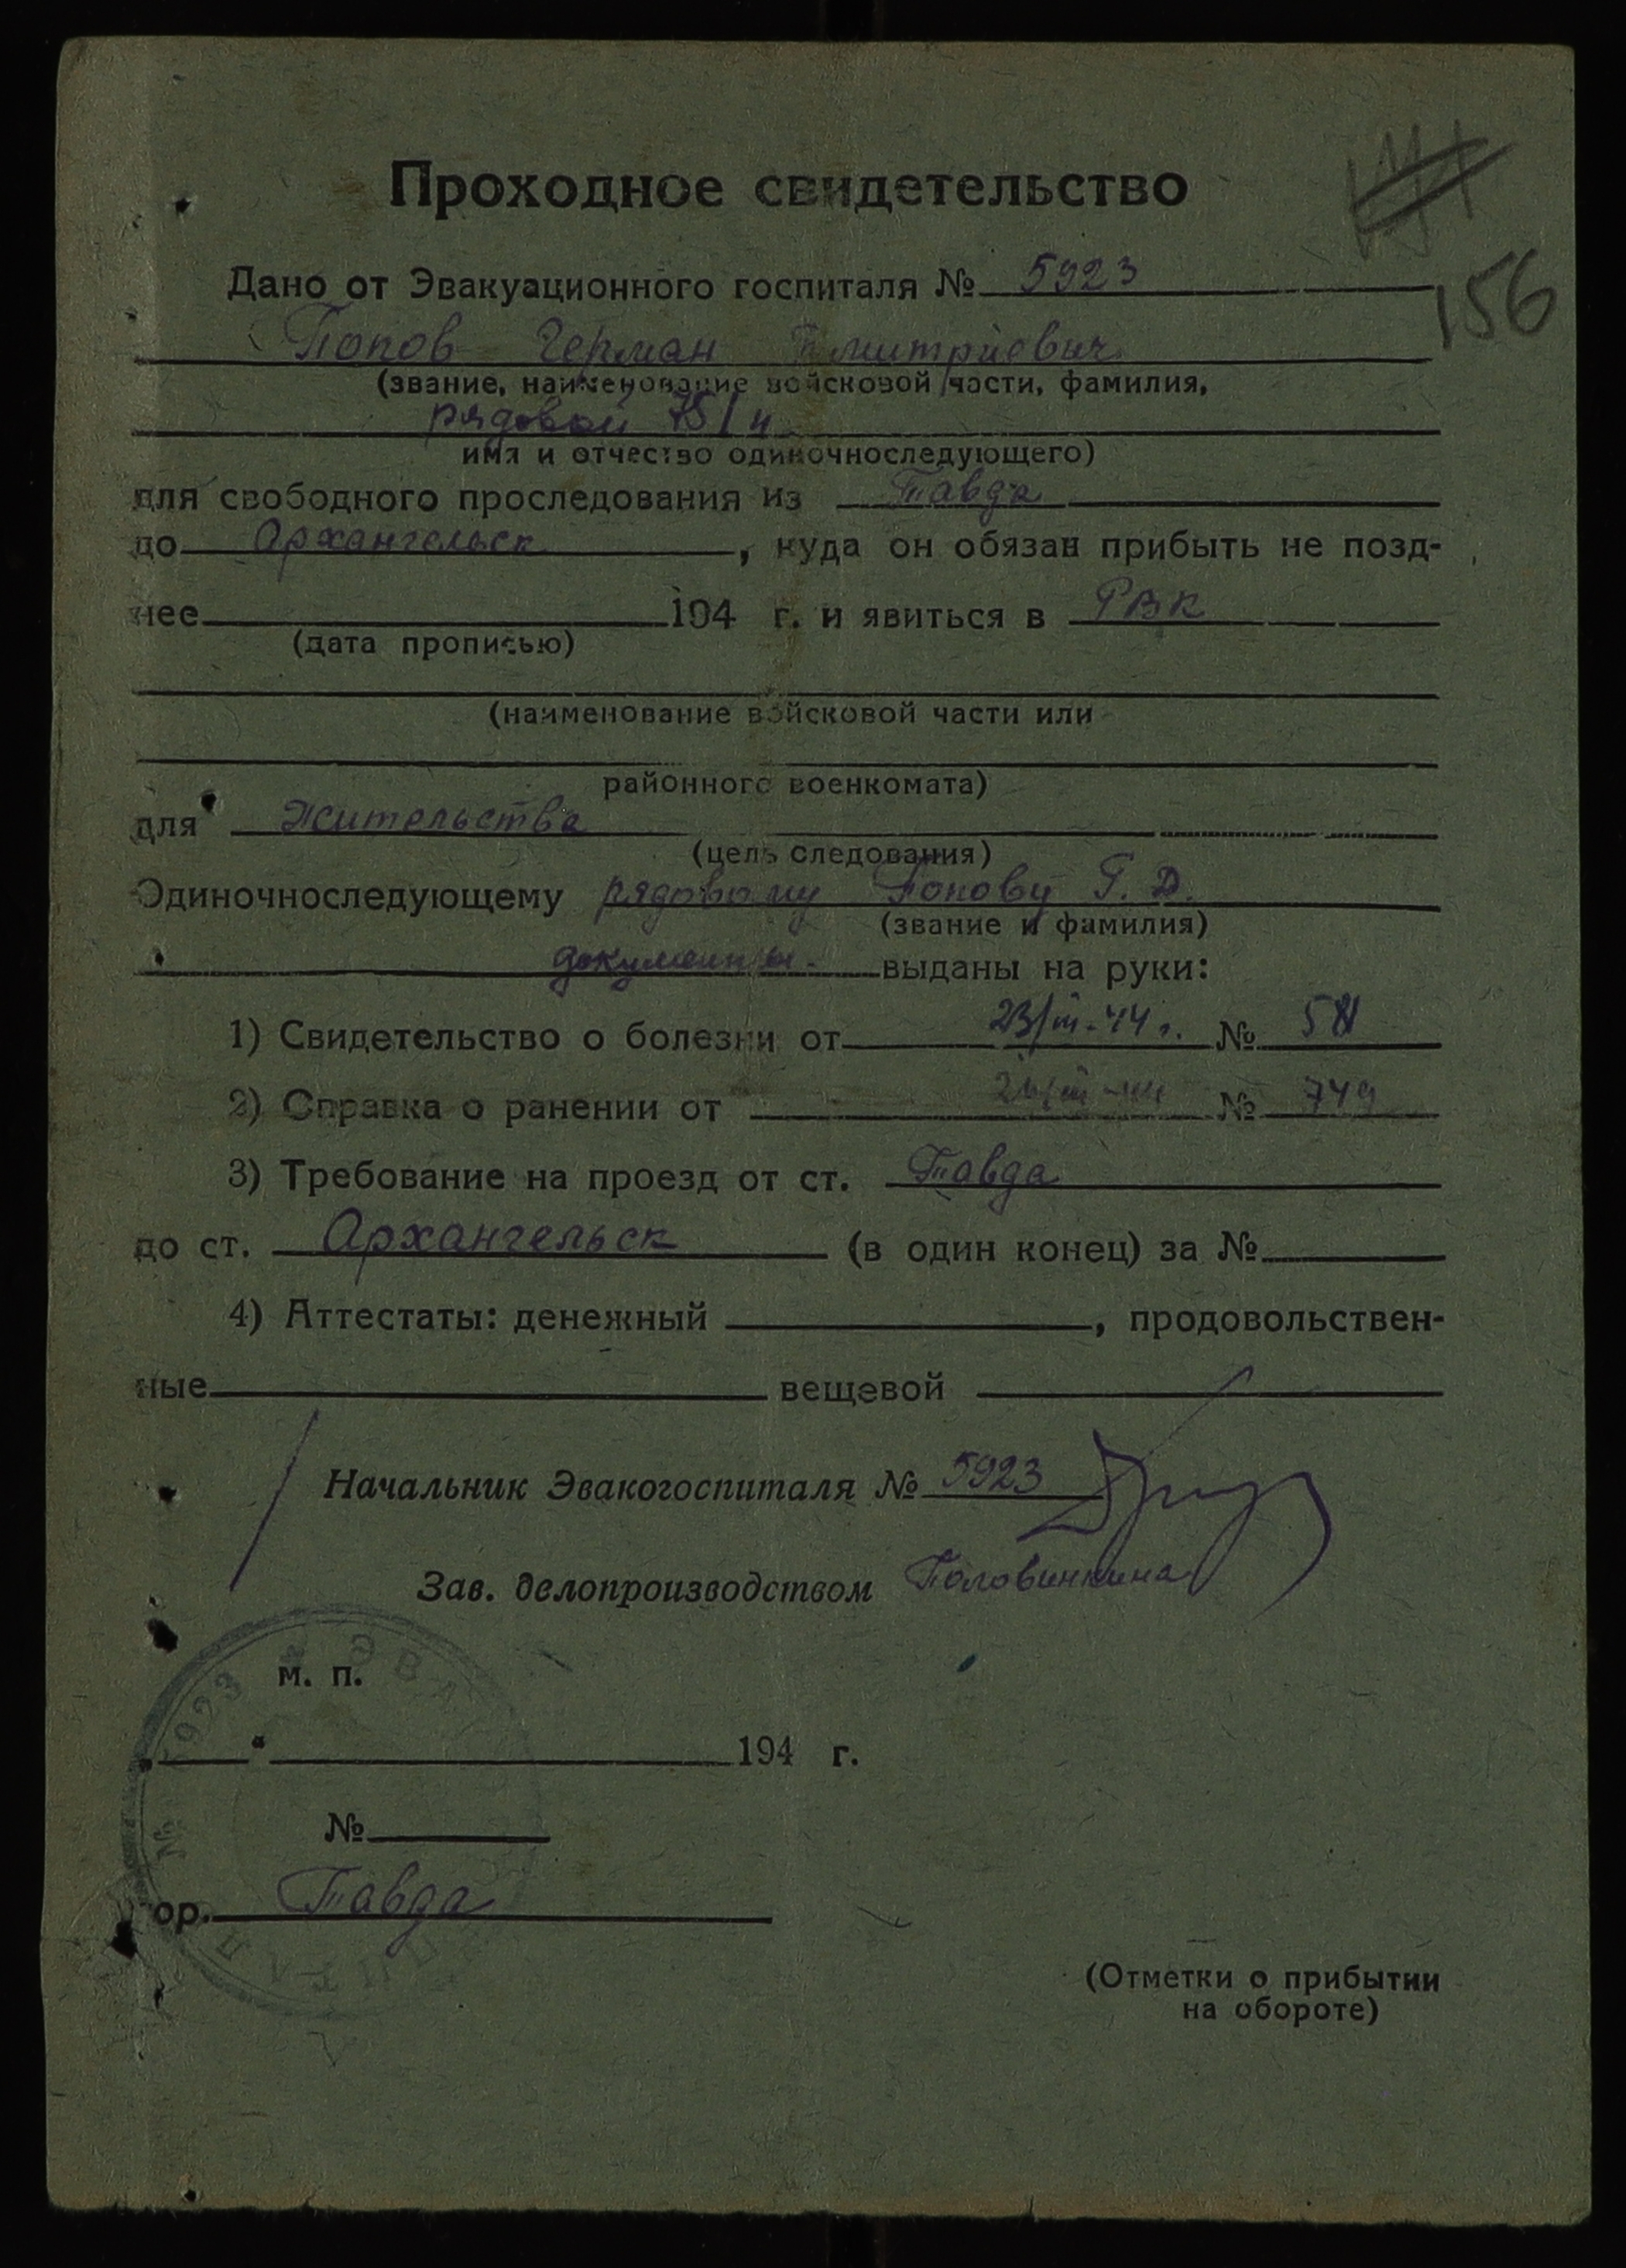 Проходное свидетельство
156
Дано от Эвакуационного госпиталя № 5923
Попов Герман Дмитриевич
(звание, наименование войсковой части, фамилия,
рядовой
имя и отчество одиночноследующего)
для свободного проследования из Тавда
до Архангельск, куда он обязан прибыть не позд-
нее 194 г. и явиться в РВК
(дата прописью)
(наименование войсковой части или
районного военкомата)
для жительства
(цель следования)
Одиночноследующему рядовому Попову Г. Д.
(звание и фамилия)
документы выданы на руки:
1) Свидетельство о болезни от 23/III-44 г. №
2) Справка о ранении от № 749
3) Требование на проезд от ст. Тавда
до ст. Архангельск (в один конец) за №
4) Аттестаты: денежный , продовольствен-
ные вещевой
Начальник Эвакогоспиталя № 5923
Зав. делопроизводством Половинкина
м. п.
„ “ 194 г.
№
гор. Тавда
(Отметки о прибытии
на обороте)